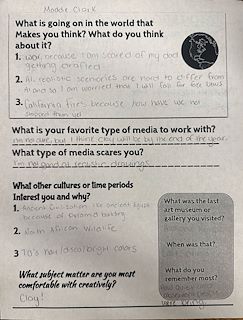 Maddie Clark
What is going on in the world that
Makes you think? What do you think
about it?
1. War, because I am scared of my dad
getting drafted
2. AI, realistic sceneries are hard to differ from
AI and so I am worried that I will fall for fake news
3. California fires because how have we not
stopped them yet
What is your favorite type of media to work with?
no me clue, but I think clay will be by the end of the year.
What type of media scares you?
I'm not good at realistic drawings
What other cultures or time periods
Interest you and why?
1. Ancient Civilization like ancient Egypt
because of pyramid history
2. North African Wildlife
3 70's hair/disco/bright colors
What subject matter are you most
comfortable with creatively?
Clay!
What was the last
art museum or
gallery you visited?
When was that?
What do you
remember most?